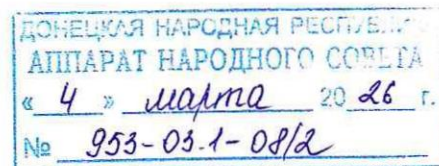 ДОНЕЦКАЯ НАРОДНАЯ РЕСПУБЛИКА
АППАРАТ НАРОДНОГО СОВЕТА
« 4 » марта 20 26 г.
№ 953-03.1-08/2